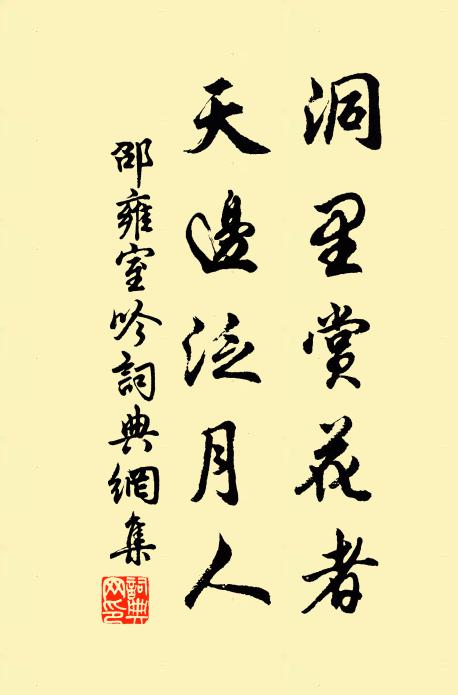 洞里赏花者
天邊泛月人
邵雍室吟詞典網集
詞典網印